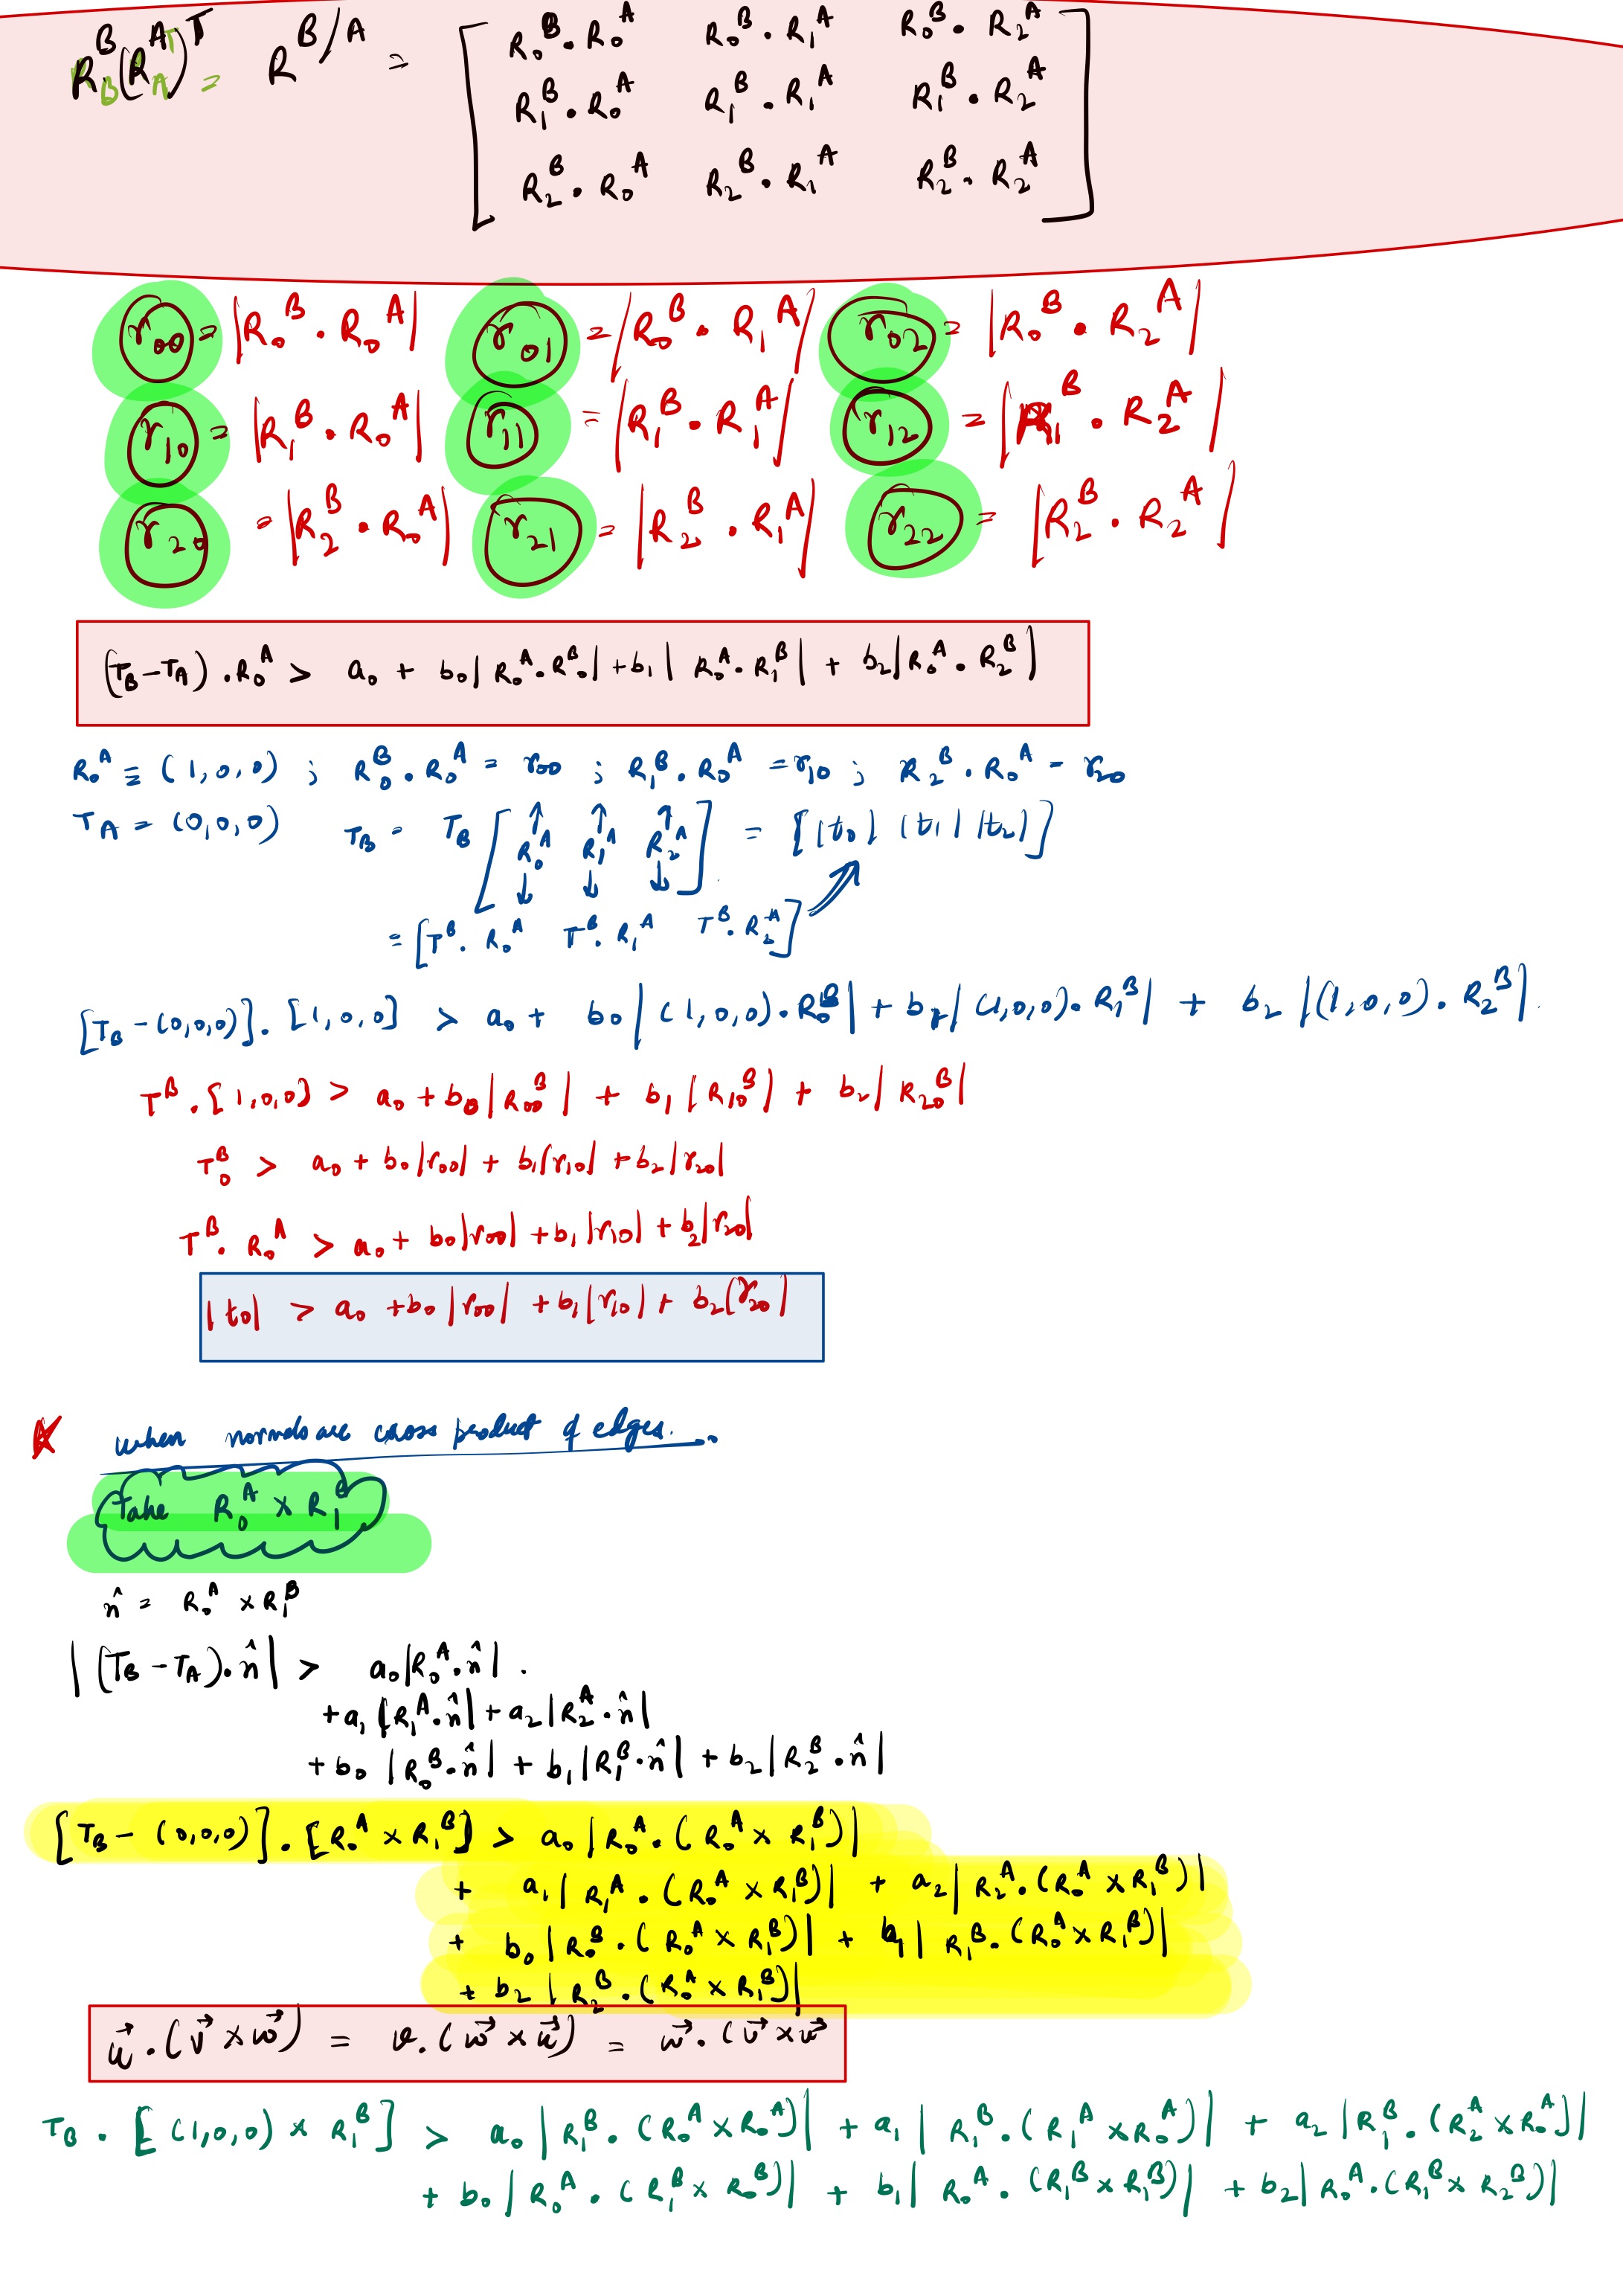 R_B^B (R_A^A)^T = R^{B/A} = [ R_0^B · R_0^A   R_0^B · R_1^A   R_0^B · R_2^A
R_1^B · R_0^A   R_1^B · R_1^A   R_1^B · R_2^A
R_2^B · R_0^A   R_2^B · R_1^A   R_2^B · R_2^A ]
r_00 = |R_0^B · R_0^A|   r_01 = |R_0^B · R_1^A|   r_02 = |R_0^B · R_2^A|
r_10 = |R_1^B · R_0^A|   r_11 = |R_1^B · R_1^A|   r_12 = |R_1^B · R_2^A|
r_20 = |R_2^B · R_0^A|   r_21 = |R_2^B · R_1^A|   r_22 = |R_2^B · R_2^A|
(T_B - T_A) · R_0^A > a_0 + b_0|R_0^A · R_0^B| + b_1|R_0^A · R_1^B| + b_2|R_0^A · R_2^B|
R_0^A ≡ (1,0,0) ; R_0^B · R_0^A = r_00 ; R_1^B · R_0^A = r_10 ; R_2^B · R_0^A = r_20
T_A = (0,0,0)   T_B = T_B [ ↑ ↑ ↑ R_0^A R_1^A R_2^A ↓ ↓ ↓ ] = [|t_0| |t_1| |t_2|]
= [T^B · R_0^A   T^B · R_1^A   T^B · R_2^A]
[T_B - (0,0,0)] · [1,0,0] > a_0 + b_0|(1,0,0) · R_0^B| + b_1|(1,0,0) · R_1^B| + b_2|(1,0,0) · R_2^B|
T^B · [1,0,0] > a_0 + b_0|R_00^B| + b_1|R_10^B| + b_2|R_20^B|
T_0^B > a_0 + b_0|r_00| + b_1|r_10| + b_2|r_20|
T^B · R_0^A > a_0 + b_0|r_00| + b_1|r_10| + b_2|r_20|
|t_0| > a_0 + b_0|r_00| + b_1|r_10| + b_2|r_20|
when normals are cross product of edges.
Take R_0^A × R_1^B
n̂ = R_0^A × R_1^B
|(T_B - T_A) · n̂| > a_0|R_0^A · n̂|
+ a_1|R_1^A · n̂| + a_2|R_2^A · n̂|
+ b_0|R_0^B · n̂| + b_1|R_1^B · n̂| + b_2|R_2^B · n̂|
[T_B - (0,0,0)] · [R_0^A × R_1^B] > a_0|R_0^A · (R_0^A × R_1^B)|
+ a_1|R_1^A · (R_0^A × R_1^B)| + a_2|R_2^A · (R_0^A × R_1^B)|
+ b_0|R_0^B · (R_0^A × R_1^B)| + b_1|R_1^B · (R_0^A × R_1^B)|
+ b_2|R_2^B · (R_0^A × R_1^B)|
u⃗ · (v⃗ × w⃗) = v · (w⃗ × u⃗) = w⃗ · (u⃗ × v⃗
T_B · [(1,0,0) × R_1^B] > a_0|R_1^B · (R_0^A × R_0^A)| + a_1|R_1^B · (R_1^A × R_0^A)| + a_2|R_1^B · (R_2^A × R_0^A)|
+ b_0|R_0^A · (R_1^B × R_0^B)| + b_1|R_0^A · (R_1^B × R_1^B)| + b_2|R_0^A · (R_1^B × R_2^B)|